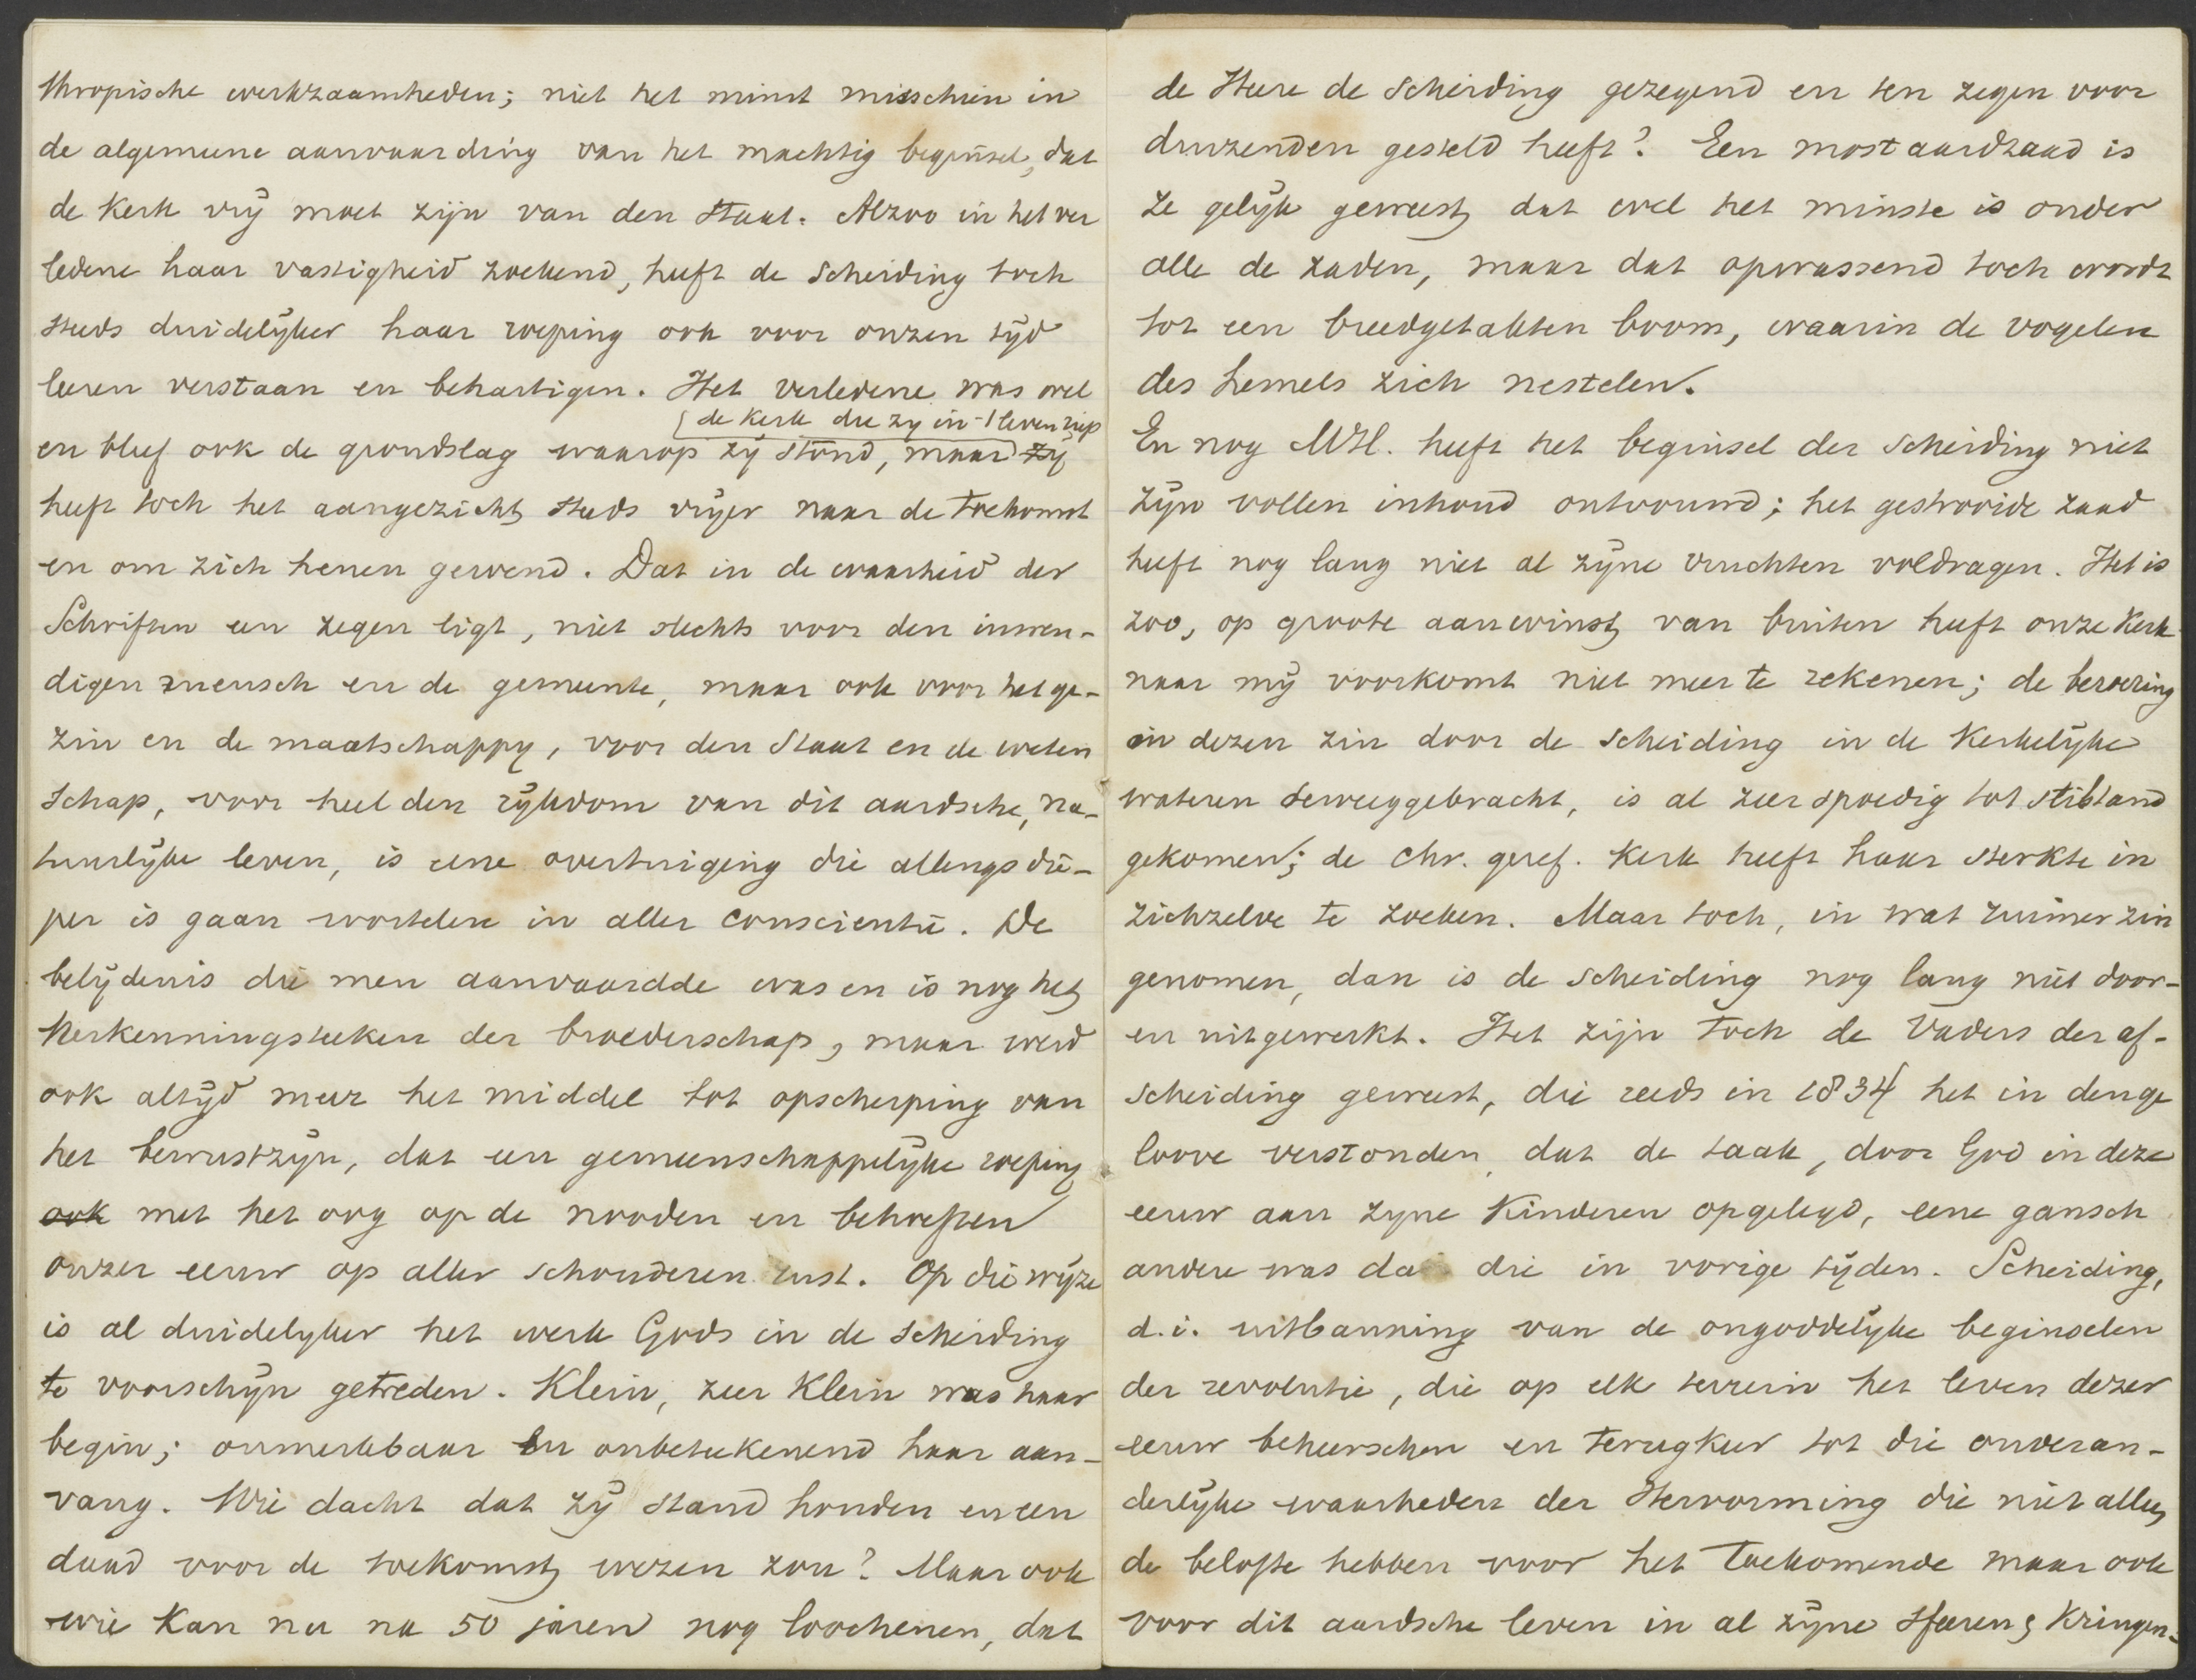 thropische werkzaamheden; niet het minst misschien in
de algemeene aanvaarding van het machtig beginsel, dat
de Kerk vrij moet zijn van den Staat. Alzoo in het ver
ledene haar vastigheid zoekend, heeft de Scheiding toch
steeds duidelijker haar roeping ook voor onzen tijd
leeren verstaan en behartigen. Het verledene was wel
de kerk die zy in 't leven riep
en bleef ook de grondslag waarop zij stond, maar zij
heeft toch het aangezicht steeds vrijer naar de toekomst
en om zich henen gewend. Dat in de waarheid der
Schriften een zegen ligt, niet slechts voor den inwen-
digen mensch en de gemeente, maar ook voor het ge-
zin en de maatschappy, voor den Staat en de weten
schap, voor heel den rijkdom van dit aardsche, na-
tuurlijke leven, is eene overtuiging die allengs die-
per is gaan wortelen in aller conscientie. De
belijdenis die men aanvaardde was en is nog het
herkenningsteeken der broederschap, maar werd
ook altijd meer het middel tot opscherping van
het bewustzijn, dat een gemeenschappelijke roeping
ook met het oog op de nooden en behoeften
onzer eeuw op aller schouderen rust. Op die wijze
is al duidelyker het werk Gods in de Scheiding
te voorschijn getreden. Klein, zeer klein was haar
begin; onmerkbaar en onbeteekenend haar aan-
vang. Wie dacht dat zij stand houden en een
daad voor de toekomst wezen zou? Maar ook
wie kan nu na 50 jaren nog loochenen, dat
de Heere de Scheiding gezegend en ten zegen voor
duizenden gesteld heeft? Een mostaardzaad is
ze gelijk geweest, dat wel het minste is onder
alle de zaden, maar dat opwassend toch wordt
tot een breedgetakten boom, waarin de vogelen
des hemels zich nestelen.
En nog MH. heeft het beginsel der Scheiding niet
zijn vollen inhoud ontvouwd; het gestrooide zaad
heeft nog lang niet al zijne vruchten voldragen. Het is
zoo, op groote aanwinst van buiten heeft onze Kerk
naar mij voorkomt niet meer te rekenen; de beroering
in dezen zin door de Scheiding in de Kerkelijke
wateren teweeggebracht, is al zeer spoedig tot stilstand
gekomen; de Chr. geref. Kerk heeft haar sterkte in
zichzelve te zoeken. Maar toch, in wat ruimer zin
genomen, dan is de Scheiding nog lang niet door-
en uitgewerkt. Het zijn toch de Vaders der af-
scheiding geweest, die reeds in 1834 het in den ge
loove verstonden, dat de taak, door God in deze
eeuw aan zyne Kinderen opgelegd, eene gansch
andere was da die in vorige tijden. Scheiding,
d.i. uitbanning van de ongoddelijke beginselen
der revolutie, die op elk terrein het leven dezer
eeuw beheerschen en terugkeer tot die onveran-
derlijke waarheden der Hervorming die niet alleen
de belofte hebben voor het toekomende maar ook
voor dit aardsche leven in al zijne Sfeeren & Kringen.